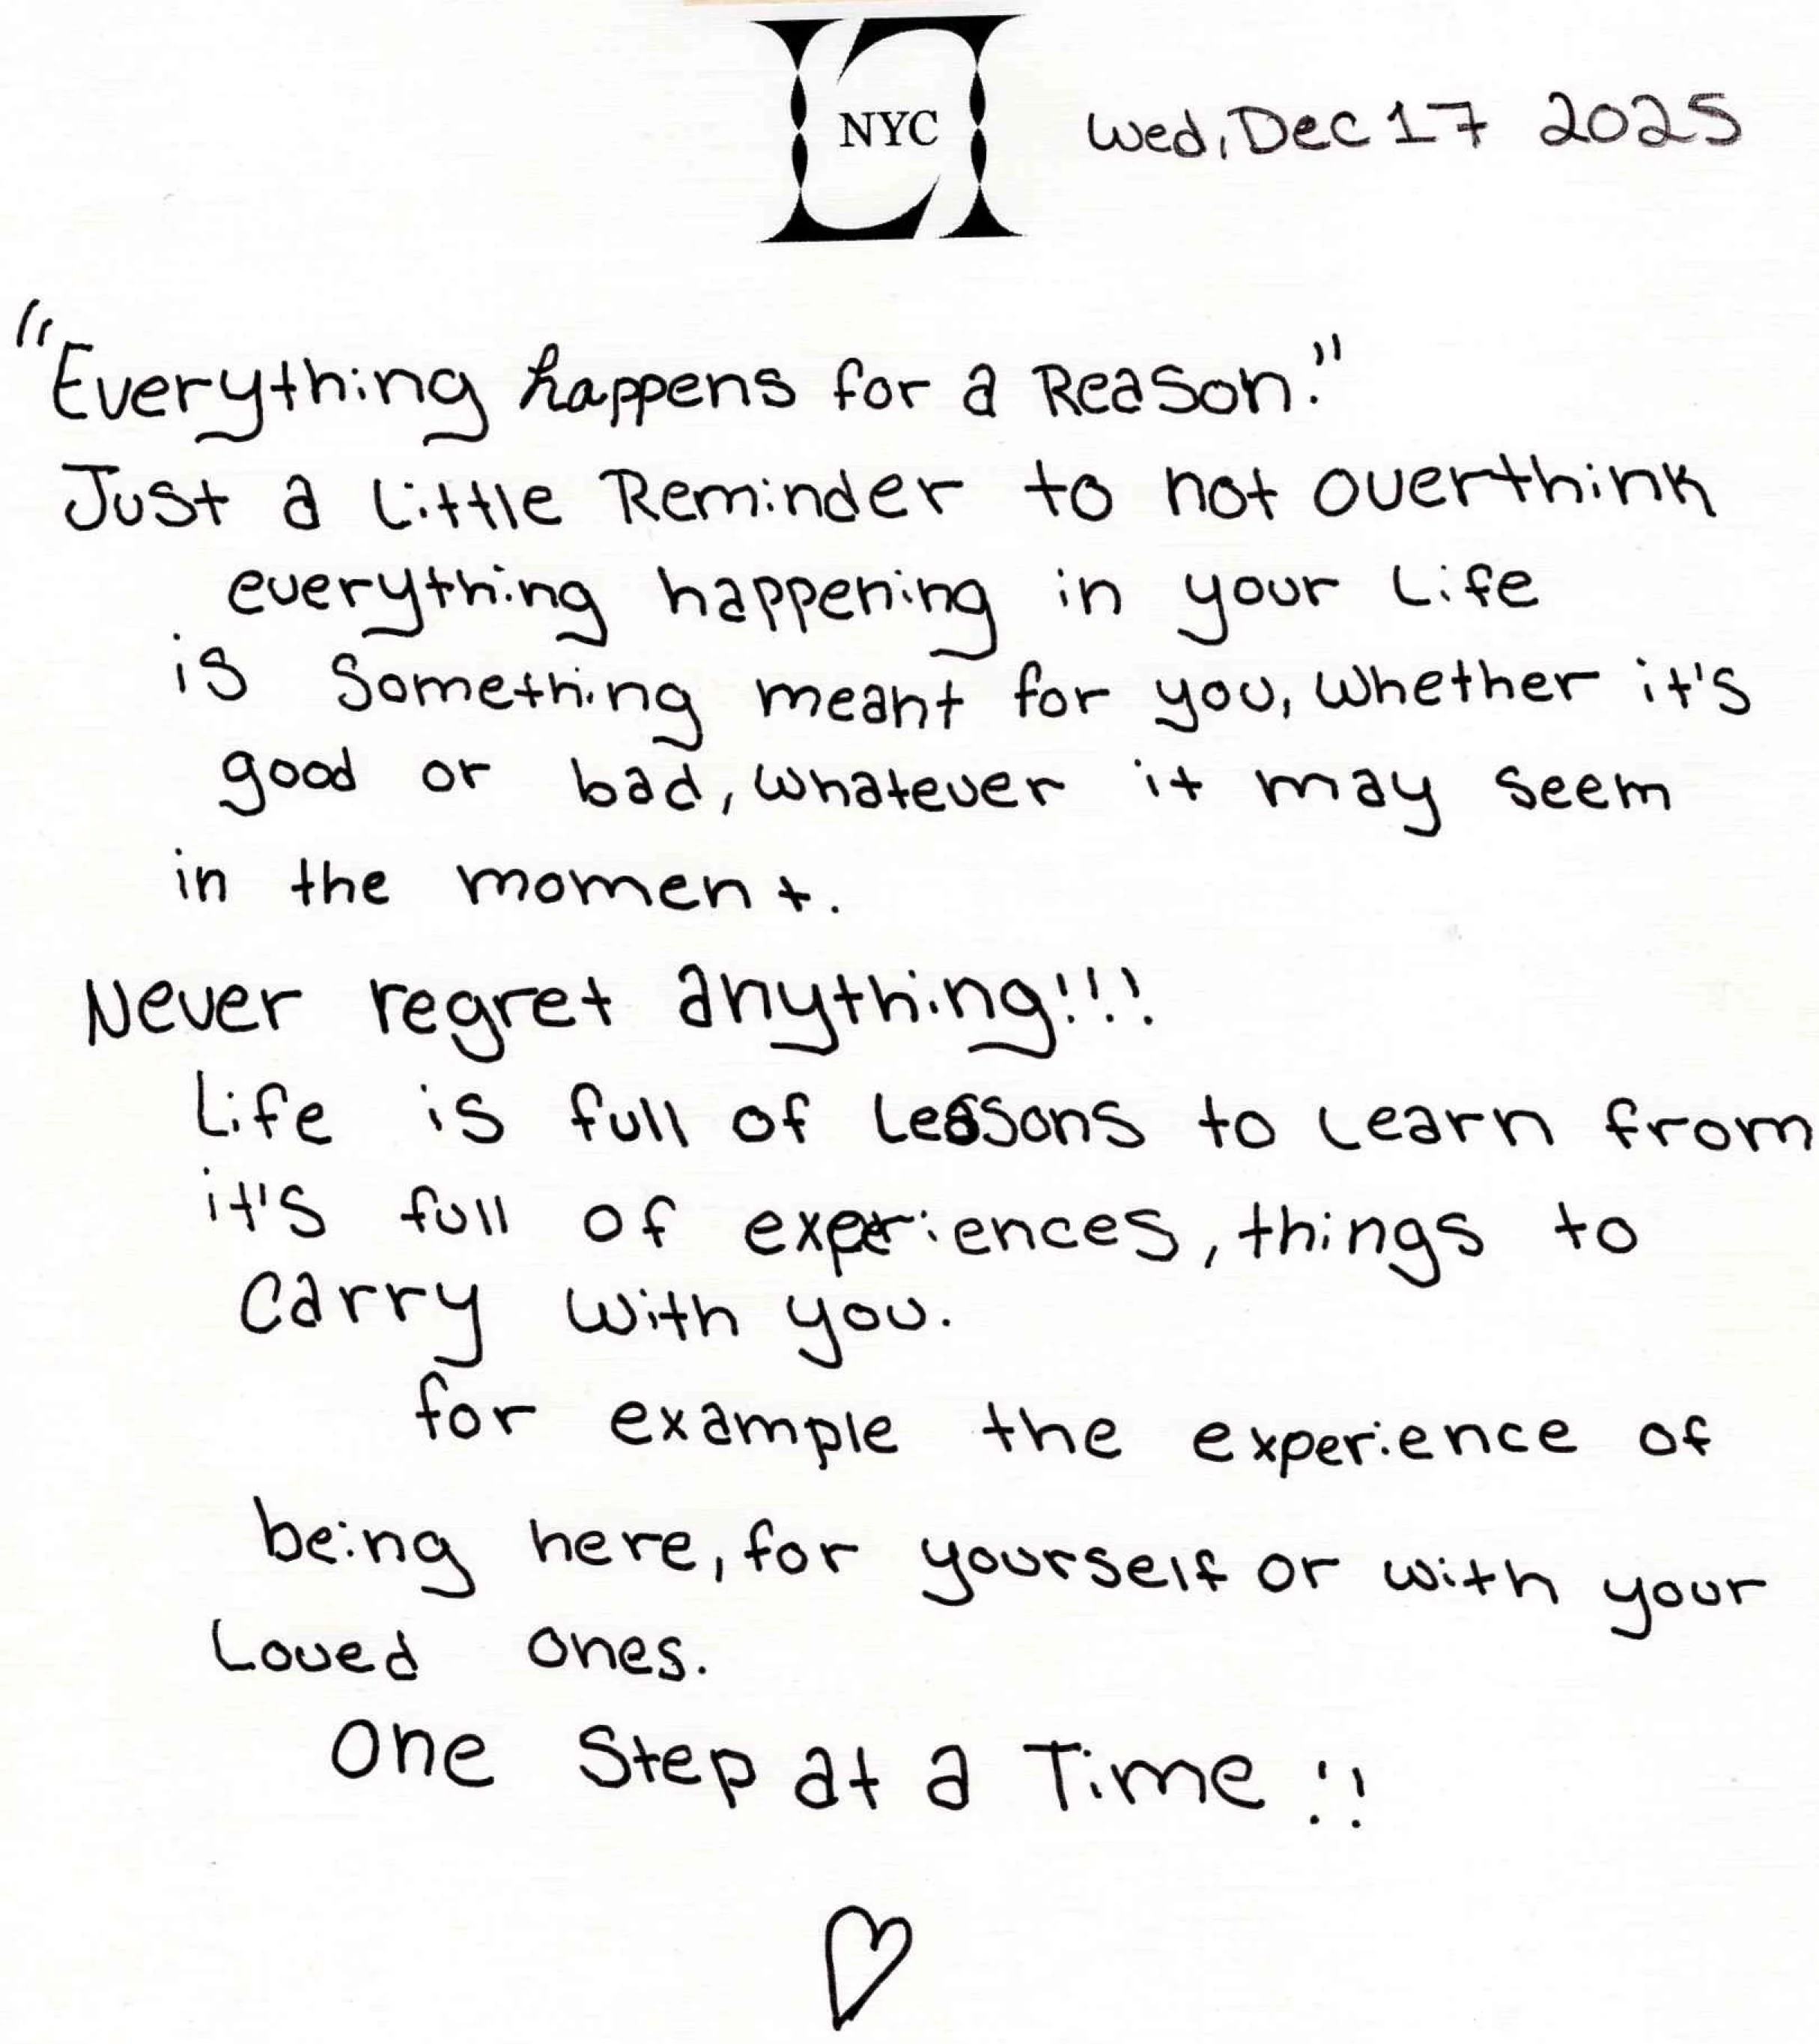 NYC
Wed, Dec 17 2025
"Everything happens for a Reason."
Just a Little Reminder to not overthink
everything happening in your Life
is Something meant for you, whether it's
good or bad, whatever it may seem
in the moment.
Never regret anything!!!
Life is full of Lessons to Learn from
it's full of experiences, things to
carry with you.
for example the experience of
being here, for yourself or with your
Loved ones.
One Step at a Time !!